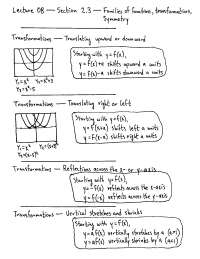 Lecture 08 — Section 2.3 — Families of functions, transformations,
Symmetry
Transformations — Translating upward or downward
Starting with y=f(x),
y=f(x)+a shifts upward a units
y=f(x)-a shifts downward a units
Y₁=X² Y₂=X²+3
Y₃=X²-5
Transformations — Translating right or left
Starting with y=f(x),
y=f(x+a) shifts left a units
y=f(x-a) shifts right a units
Y₁=X²
Transformations — Reflections across the x- or y-axis
Starting with y=f(x),
y=-f(x) reflects across the x-axis
y=f(-x) reflects across the y-axis
Transformations — Vertical stretches and shrinks
Starting with y=f(x),
y=af(x) vertically stretches by a (a>1)
y=af(x) vertically shrinks by a (a<1)